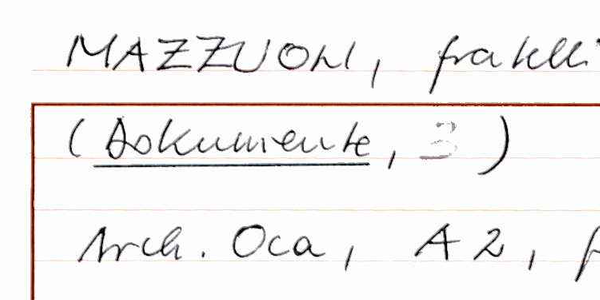 MAZZUOLI, fratelli
(Dokumente, 3)
Arch. Oca, A 2, f